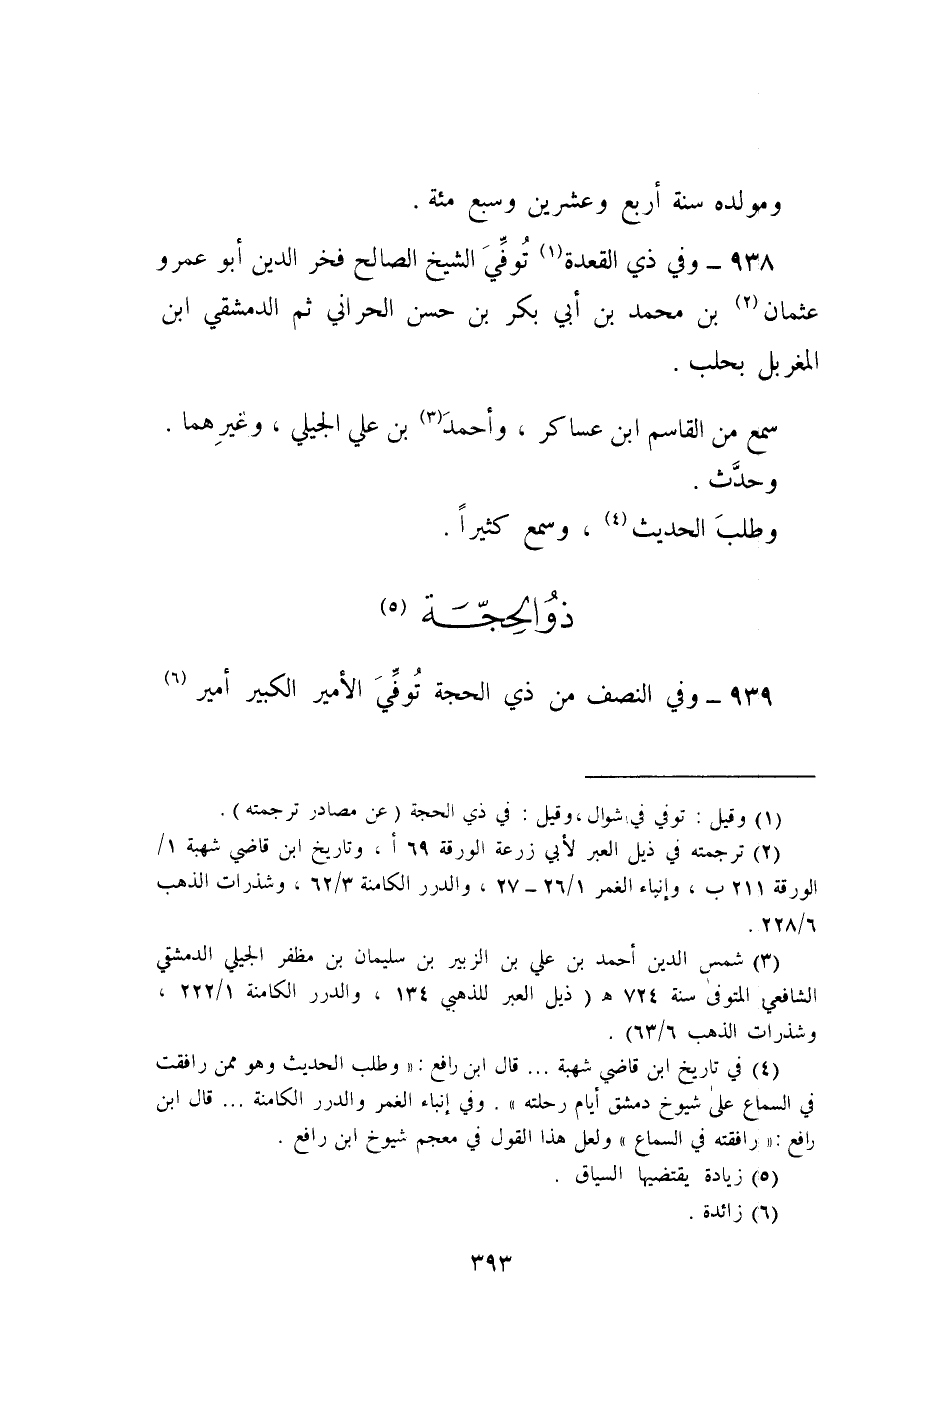 ومولده سنة أربع وعشرين وسبع مئة .
٩٣٨ ـ وفي ذي القعدة(١) تُوفِّيَ الشيخ الصالح فخر الدين أبو عمرو
عثمان(٢) بن محمد بن أبي بكر بن حسن الحراني ثم الدمشقي ابن
المغربل بحلب .
سمع من القاسم ابن عساكر ، وأحمدَ(٣) بن علي الجيلي ، وغيرِهما .
وحدَّث .
وطلبَ الحديث(٤) ، وسمع كثيراً .
ذُو الحِجّة (٥)
٩٣٩ ـ وفي النصف من ذي الحجة تُوفِّيَ الأمير الكبير أمير (٦)
(١) وقيل : توفي في شوال ، وقيل : في ذي الحجة ( عن مصادر ترجمته ) .
(٢) ترجمته في ذيل العبر لأبي زرعة الورقة ٦٩ أ ، وتاريخ ابن قاضي شهبة ١/
الورقة ٢١١ ب ، وإنباء الغمر ٢٦/١ ـ ٢٧ ، والدرر الكامنة ٦٢/٣ ، وشذرات الذهب
٢٢٨/٦ .
(٣) شمس الدين أحمد بن علي بن الزبير بن سليمان بن مظفر الجيلي الدمشقي
الشافعي المتوفىٰ سنة ٧٢٤ ه ( ذيل العبر للذهبي ١٣٤ ، والدرر الكامنة ٢٢٢/١ ،
وشذرات الذهب ٦٣/٦) .
(٤) في تاريخ ابن قاضي شهبة ... قال ابن رافع : « وطلب الحديث وهو ممن رافقت
في السماع علىٰ شيوخ دمشق أيام رحلته » . وفي إنباء الغمر والدرر الكامنة ... قال ابن
رافع : « رافقته في السماع » ولعل هذا القول في معجم شيوخ ابن رافع .
(٥) زيادة يقتضيها السياق .
(٦) زائدة .
٣٩٣